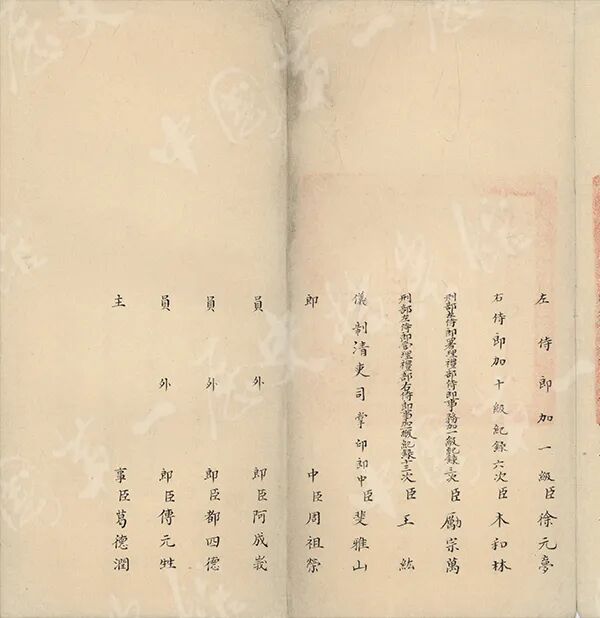 左侍郎加一級臣徐元夢
右侍郎加十級紀錄六次臣木和林
刑部左侍郎署理禮部侍郎事務加一級紀錄次臣勵宗萬
刑部左侍郎管理禮部右侍郎事級紀錄十三次臣王紘
儀制清吏司掌印郎中臣斐雅山
郎中臣周祖榮
員外郎臣阿成峩
員外郎臣都四德
員外郎臣傅元甡
主事臣葛德潤
中国第一历史档案馆